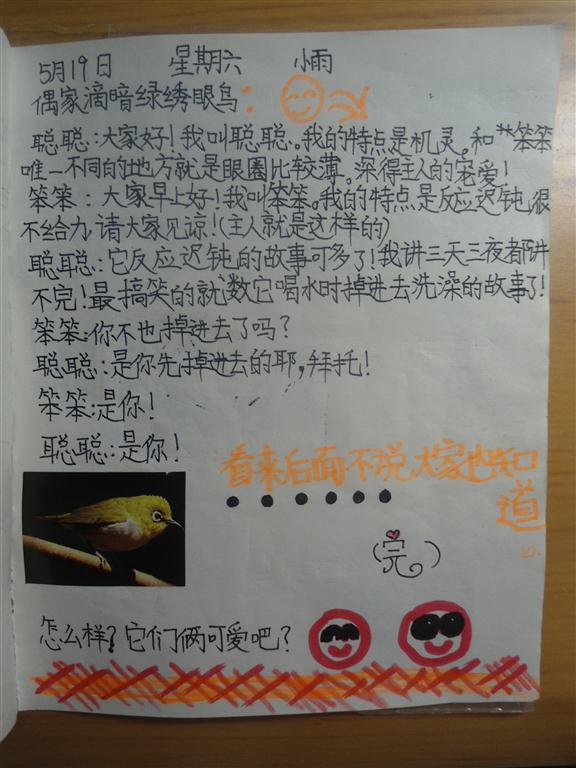 5月19日 星期六 小雨
偶家滴暗绿绣眼鸟：
聪聪：大家好！我叫聪聪。我的特点是机灵。和笨笨
唯一不同的地方就是眼圈比较薄。深得主人的宠爱！
笨笨：大家早上好！我叫笨笨。我的特点是反应迟钝，很
不给力，请大家见谅！（主人就是这样的）
聪聪：它反应迟钝的故事可多了！我讲三天三夜都讲
不完！最搞笑的就数它喝水时掉进去洗澡的故事了！
笨笨：你不也掉进去了吗？
聪聪：是你先掉进去的耶，拜托！
笨笨：是你！
聪聪：是你！
看来后面不说大家也知
道
······
（完）
怎么样？它们俩可爱吧？